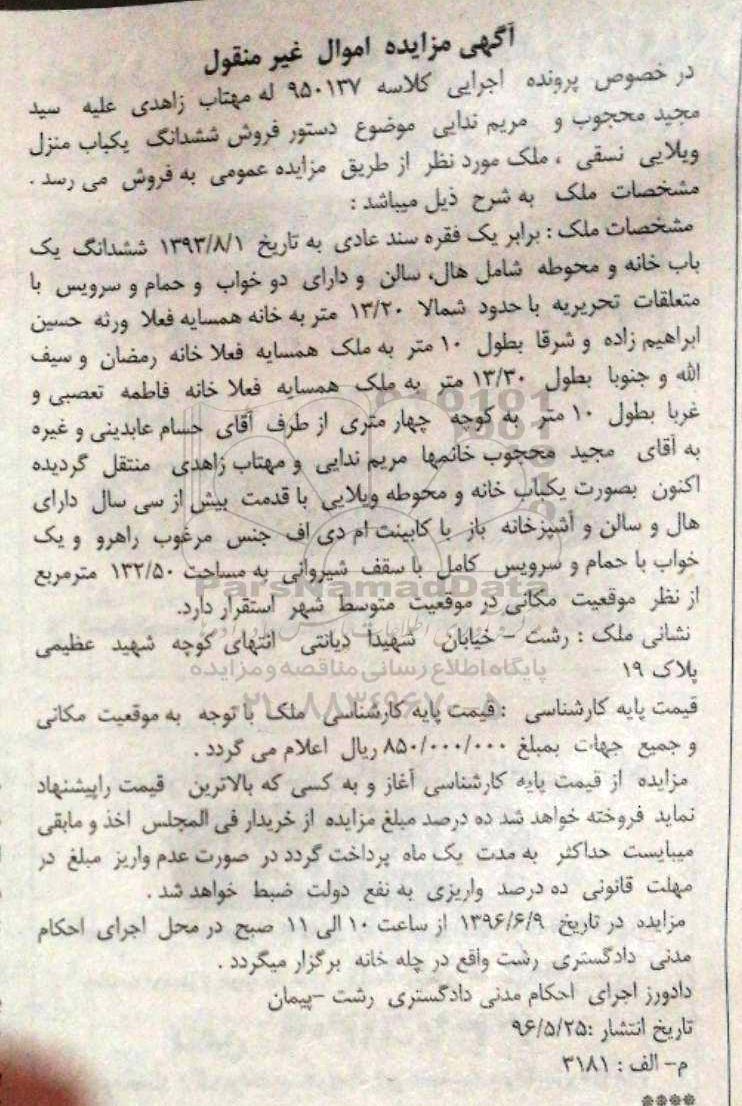 آگهی مزایده اموال غیر منقول
در خصوص پرونده اجرایی کلاسه ۹۵۰۱۳۷ له مهتاب زاهدی علیه سید
مجید محجوب و مریم ندایی موضوع دستور فروش ششدانگ یکباب منزل
ویلایی نسقی ، ملک مورد نظر از طریق مزایده عمومی به فروش می رسد .
مشخصات ملک به شرح ذیل میباشد :
مشخصات ملک : برابر یک فقره سند عادی به تاریخ ۱۳۹۳/۸/۱ ششدانگ یک
باب خانه و محوطه شامل هال، سالن و دارای دو خواب و حمام و سرویس با
متعلقات تحریریه با حدود شمالا ۱۳/۲۰ متر به خانه همسایه فعلا ورثه حسین
ابراهیم زاده و شرقا بطول ۱۰ متر به ملک همسایه فعلا خانه رمضان و سیف
الله و جنوبا بطول ۱۳/۳۰ متر به ملک همسایه فعلا خانه فاطمه تعصبی و
غربا بطول ۱۰ متر به کوچه چهار متری از طرف آقای حسام عابدینی و غیره
به آقای مجید محجوب خانمها مریم ندایی و مهتاب زاهدی منتقل گردیده
اکنون بصورت یکباب خانه و محوطه ویلایی با قدمت بیش از سی سال دارای
هال و سالن و آشپزخانه باز با کابینت ام دی اف جنس مرغوب راهرو و یک
خواب با حمام و سرویس کامل با سقف شیروانی به مساحت ۱۳۲/۵۰ مترمربع
از نظر موقعیت مکانی در موقعیت متوسط شهر استقرار دارد.
ParsNamadData
نشانی ملک : رشت - خیابان شهیدا دیانتی انتهای کوچه شهید عظیمی
پلاک ۱۹
پایگاه اطلاع رسانی مناقصه و مزایده
۰۲۱-۸۸۳۴۹۶۷۰
قیمت پایه کارشناسی : قیمت پایه کارشناسی ملک با توجه به موقعیت مکانی
و جمیع جهات بمبلغ ۸۵۰/۰۰۰/۰۰۰ ریال اعلام می گردد .
مزایده از قیمت پایه کارشناسی آغاز و به کسی که بالاترین قیمت راپیشنهاد
نماید فروخته خواهد شد ده درصد مبلغ مزایده از خریدار فی المجلس اخذ و مابقی
میبایست حداکثر به مدت یک ماه پرداخت گردد در صورت عدم واریز مبلغ در
مهلت قانونی ده درصد واریزی به نفع دولت ضبط خواهد شد .
مزایده در تاریخ ۱۳۹۶/۶/۹ از ساعت ۱۰ الی ۱۱ صبح در محل اجرای احکام
مدنی دادگستری رشت واقع در چله خانه برگزار میگردد .
دادورز اجرای احکام مدنی دادگستری رشت -پیمان
تاریخ انتشار :۹۶/۵/۲۵
م- الف : ۳۱۸۱
****